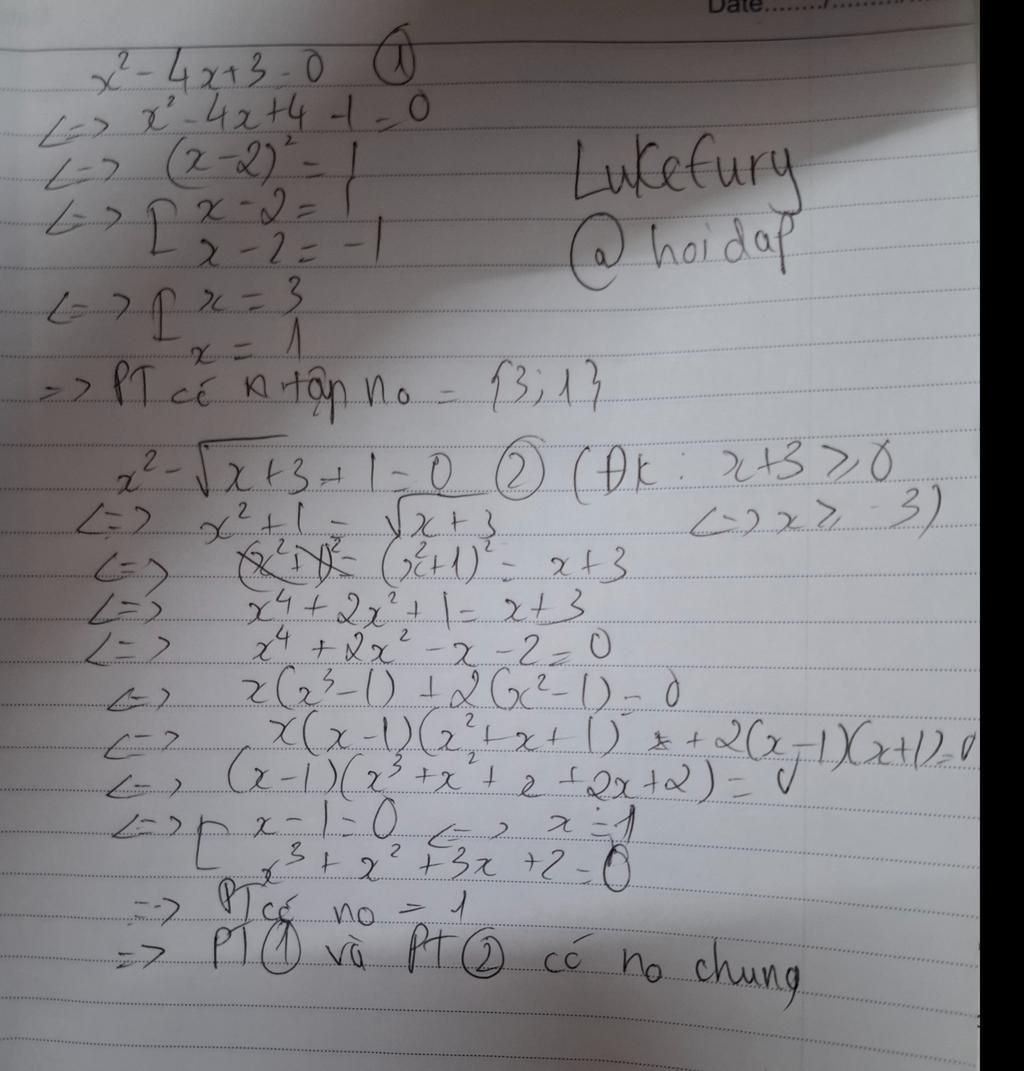 Date......./.........
x² - 4x + 3 = 0 ①
<=> x² - 4x + 4 - 1 = 0
<=> (x - 2)² = 1
<=> [ x - 2 = 1
x - 2 = -1
<=> [ x = 3
x = 1
=> PT có tập no = {3; 1}
Lukefury
@ hoidap
x² - √x+3 + 1 = 0 ② (ĐK: x+3 ≥ 0
<=> x² + 1 = √x+3 <=> x ≥ -3)
<=> (x²+1)² = (x²+1)² = x+3
<=> x⁴ + 2x² + 1 = x + 3
<=> x⁴ + 2x² - x - 2 = 0
<=> x(x³-1) + 2(x²-1) = 0
<=> x(x-1)(x²+x+1) + 2(x-1)(x+1) = 0
<=> (x-1)(x³ + x² + x + 2x + 2) = 0
<=> [ x - 1 = 0 <=> x = 1
x³ + x² + 3x + 2 = 0
=> PT có no = 1
=> PT ① và PT ② có no chung